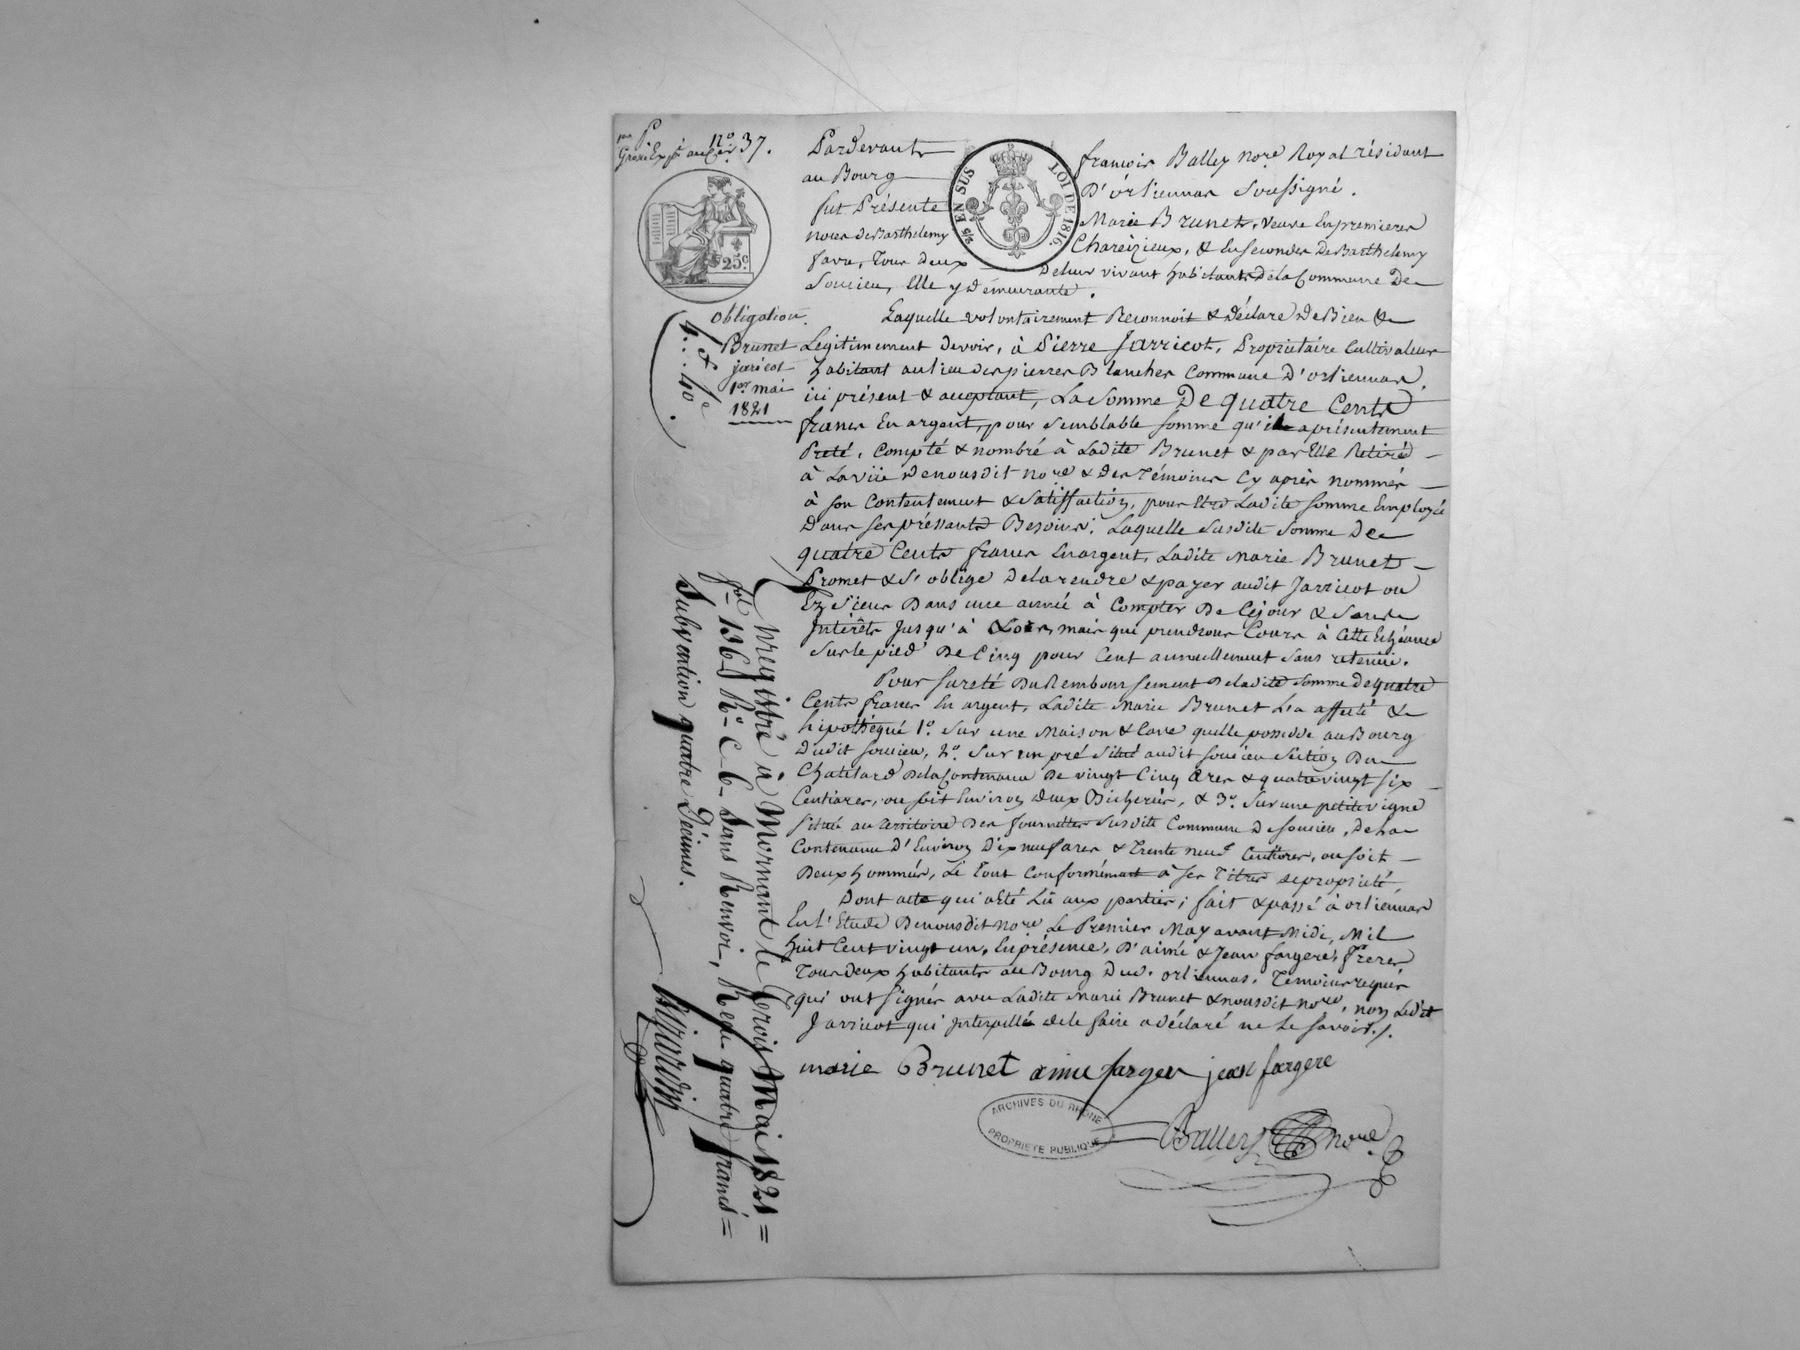 n.º 37.
25.c
EN SUS
LOI DE 1816.
Pardevant françois Balley no.re Royal résidant
au Bourg D'orliennas Soussigné.
fut Présente Marie Brunet, veuve En premieres
noces de Barthelemy Chareizieux, & En secondes De Barthelemy
fava, Tous deux De leur vivant habitants De la Commune De
Soucieu, Elle y Demeurante.
Laquelle volontairement Reconnoit & déclare De Bien &
Légitimement devoir, à Pierre Jarricot, Propriétaire Cultivateur
habitant au lieu des pierres Blanches Commune D'orliennas,
ici présent & acceptant, La Somme De quatre Cents
francs En argent, pour semblable somme qu'il a présentement
Preté, Compté & nombré à Ladite Brunet & par Elle Retiré
à La vüe De nousdit no.re & des Témoins Cy après nommés
à son Contentement & Satisffaction, pour Etre Ladite Somme Employée
Dans ses préssants Besoins; Laquelle Susdite Somme De
quatre Cents francs En argent, Ladite Marie Brunet
Promet & S'oblige De la rendre & payer audit Jarricot ou
Ez Siens Dans une année à Compter De Cejour & Sans
Intérêts Jusqu'à Lors, mais qui prendrons Cours à Cette Echéance
Sur le pied De Cinq pour Cent annuellement Sans retenüe.
Pour Sureté Du Remboursement De ladite Somme De quatre
Cents francs En argent, Ladite Marie Brunet L'a affecté &
hipothéqué 1.º Sur une Maison & Cave qu'elle possede au Bourg
Dudit Soucieu, 2.º Sur un pré Situé audit Soucieu Séction Du
Chatelard De la Contenance De vingt Cinq ares & quatre vingt six
Centiares, ou soit Environ deux Bicherées, & 3.º Sur une petite vigne
Située au territoire Des fournelles Susdite Commune De Soucieu, De la
Contenance D'Environ Dix neuf ares & Trente neuf Centiares, ou soit
Deux hommées, Le Tout Conformément à Ses Titres de propriété.
Dont acte qui a Eté Lû aux parties; fait & passé à orliennas
En L'Etude De nousdit no.re Le Premier May avant Midi, Mil
huit Cent vingt un, En présence, D'aimé & Jean fargere, Freres
Tous deux habitants au Bourg Dud. orliennas, Temoins requis
qui ont Signés avec Ladite Marie Brunet & nousdit no.re, non Ledit
Jarricot qui Interpellé de le faire a déclaré ne le Savoir./.
marie Brunet aimé fargere jean fargere
Balley no.re
ARCHIVES DU RHÔNE
PROPRIÉTÉ PUBLIQUE
Obligation.
Brunet
jaricot
1er mai
1821
4.f 40c
Enregistré à Mornant le trois Mai 1821 =
f.º 136 R.º C 6 Sans Renvoi, Reçu quatre francs =
Subvention quatre Décimes.